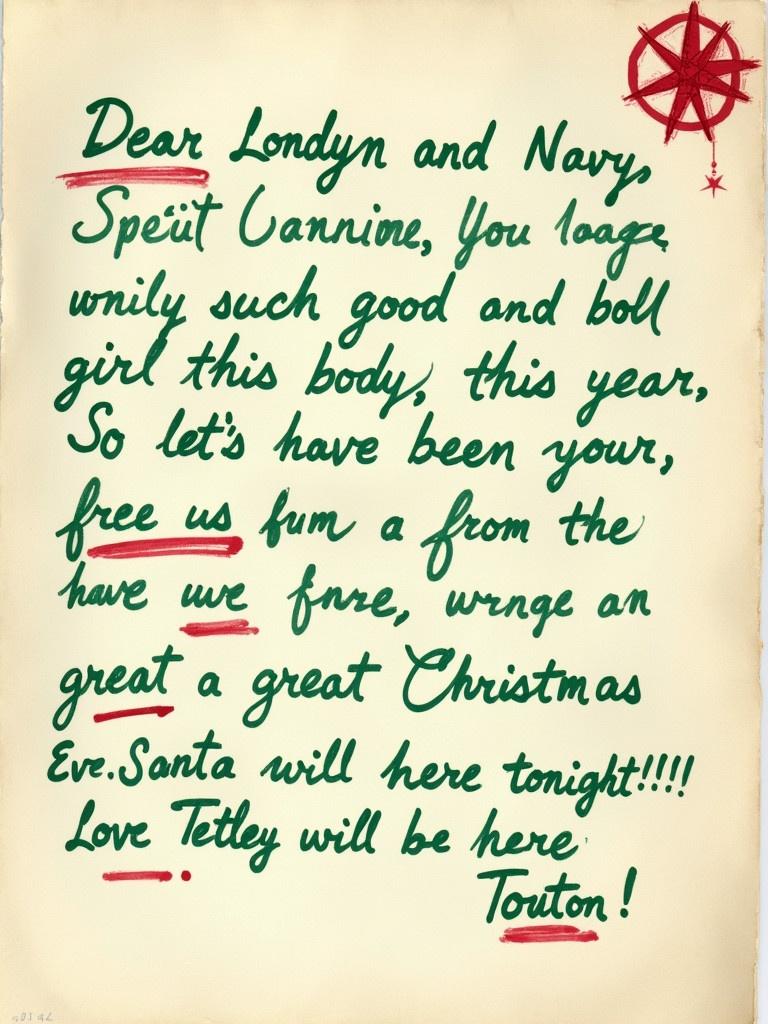 Dear Londyn and Navy,
Speüt Cannime, You loage
wnily such good and boll
girl this body, this year,
So let's have been your,
free us fum a from the
have uve fnre, wrnge an
great a great Christmas
Eve. Santa will here tonight!!!!
Love Tetley will be here
Touton!